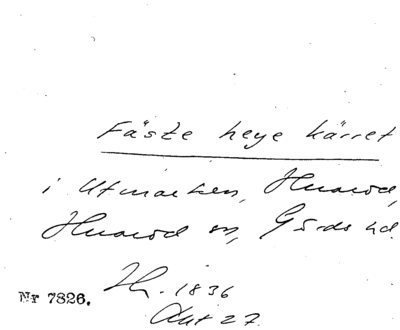 Fäste heye kärret
i Utmarken, Huaröd,
Huaröd sn, Gärds hd.
Th. 1836
Akt 27
Nr 7826.